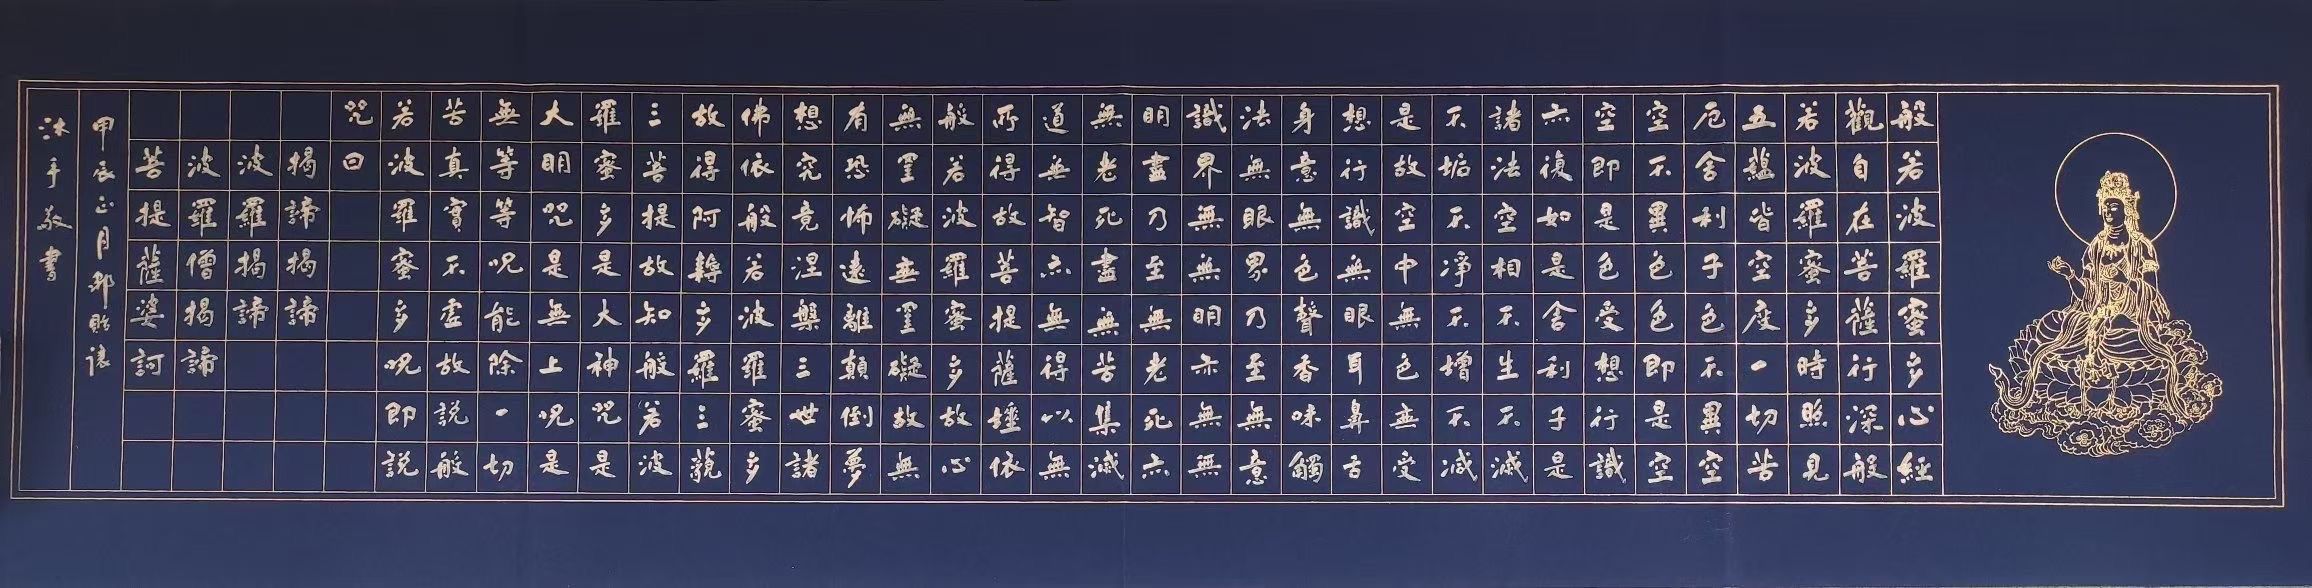 般若波羅蜜多心經
觀自在菩薩行深般
若波羅蜜多時照見
五蘊皆空度一切苦
厄舍利子色不異空
空不異色色即是空
空即是色受想行識
亦復如是舍利子是
諸法空相不生不滅
不垢不淨不增不減
是故空中無色無受
想行識無眼耳鼻舌
身意無色聲香味觸
法無眼界乃至無意
識界無無明亦無無
明盡乃至無老死亦
無老死盡無苦集滅
道無智亦無得以無
所得故菩提薩埵依
般若波羅蜜多故心
無罣礙無罣礙故無
有恐怖遠離顛倒夢
想究竟涅槃三世諸
佛依般若波羅蜜多
故得阿耨多羅三藐
三菩提故知般若波
羅蜜多是大神咒是
大明咒是無上呪是
無等等呪能除一切
苦真實不虛故說般
若波羅蜜多呪即說
咒曰
揭諦揭諦
波羅揭諦
波羅僧揭諦
菩提薩婆訶
甲辰正月
沐手敬書